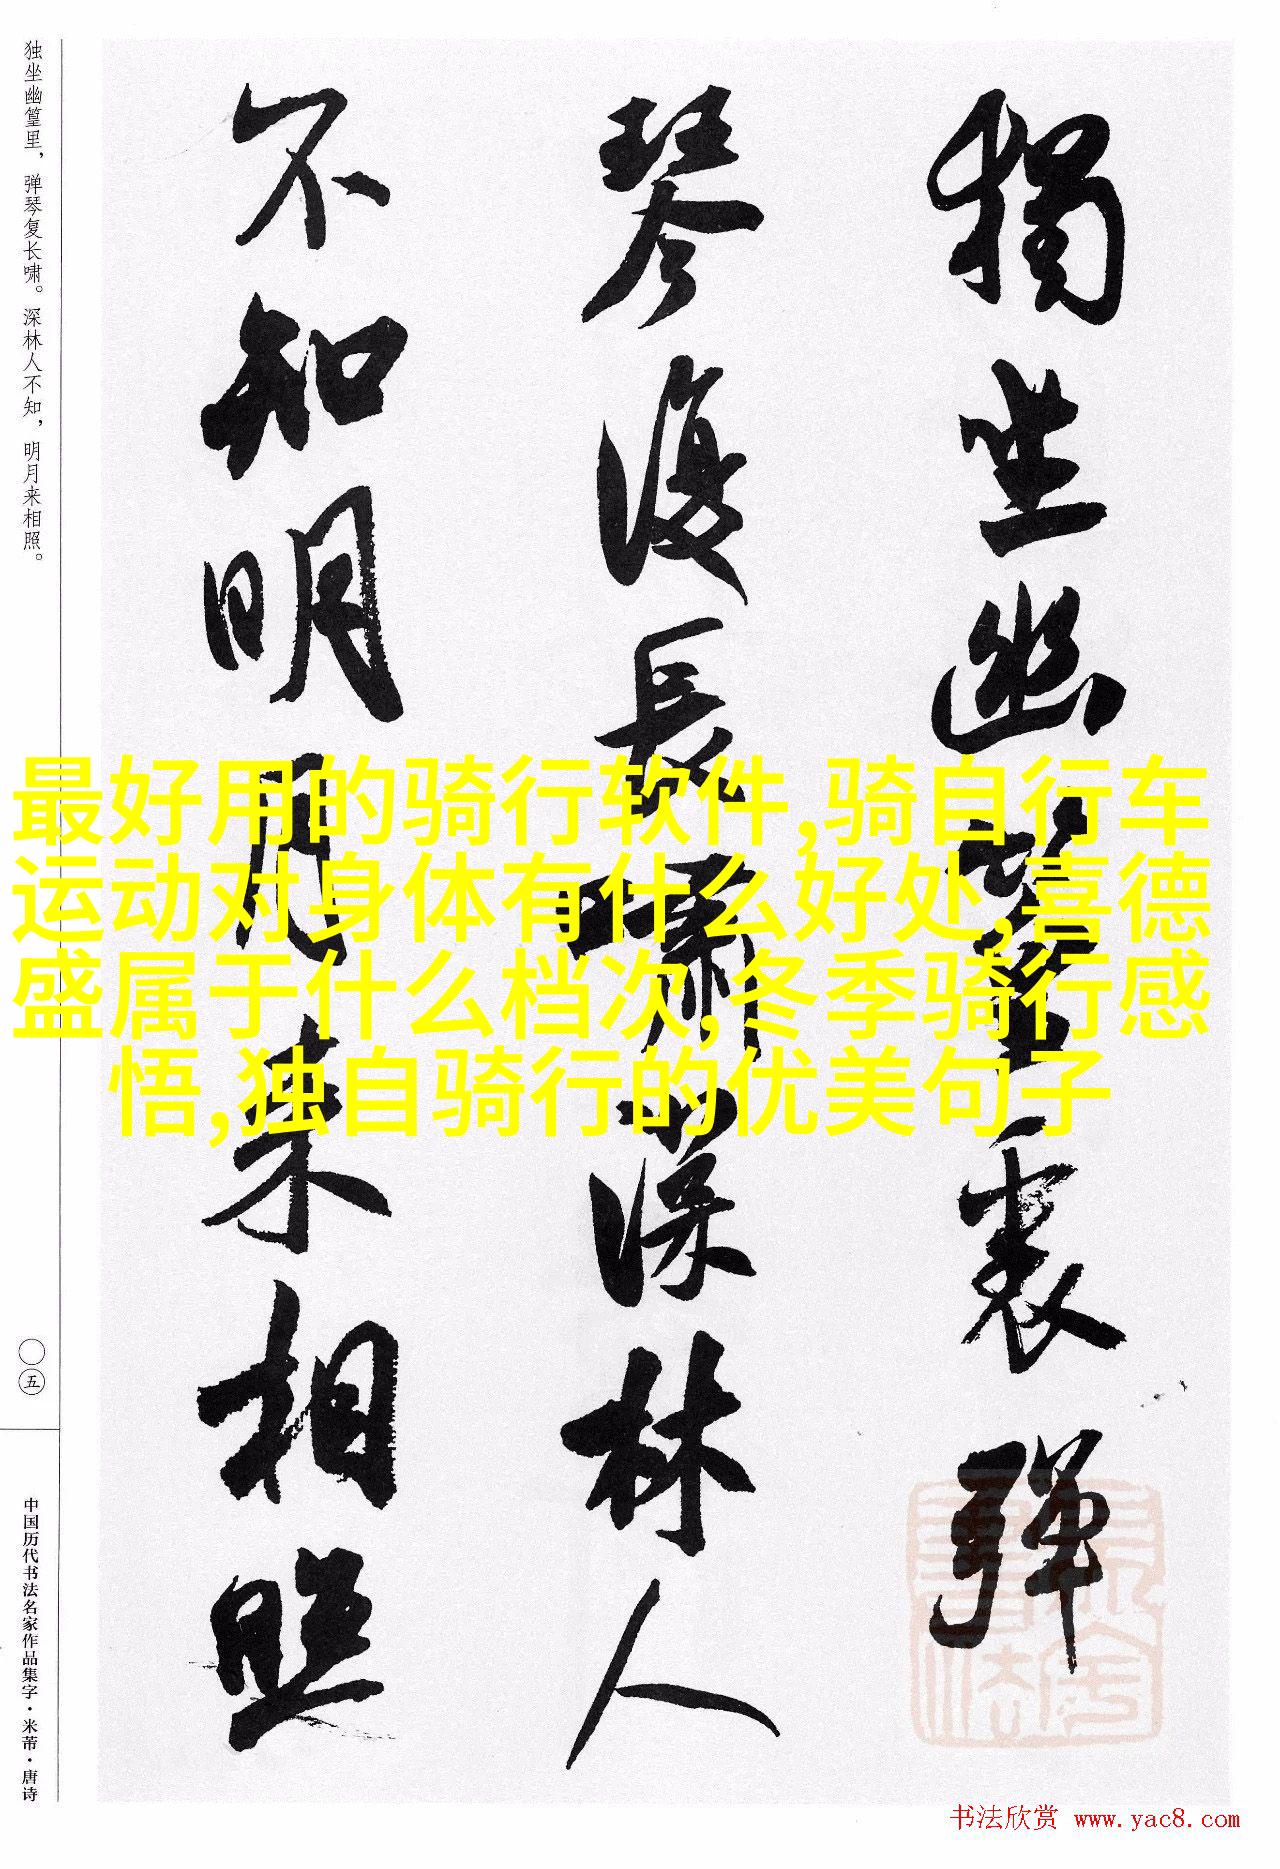 獨坐幽篁裏彈
琴復長嘯深林人
不知明月来相照
独坐幽篁里，弹琴复长啸。深林人不知，明月来相照。
〇五
中国历代书法名家作品集字·米芾·唐诗
最好用的骑行软件,骑自行车
运动对身体有什么好处,喜德
盛属于什么档次,冬季骑行感
悟,独自骑行的优美句子
书法欣赏 www.yac8.com